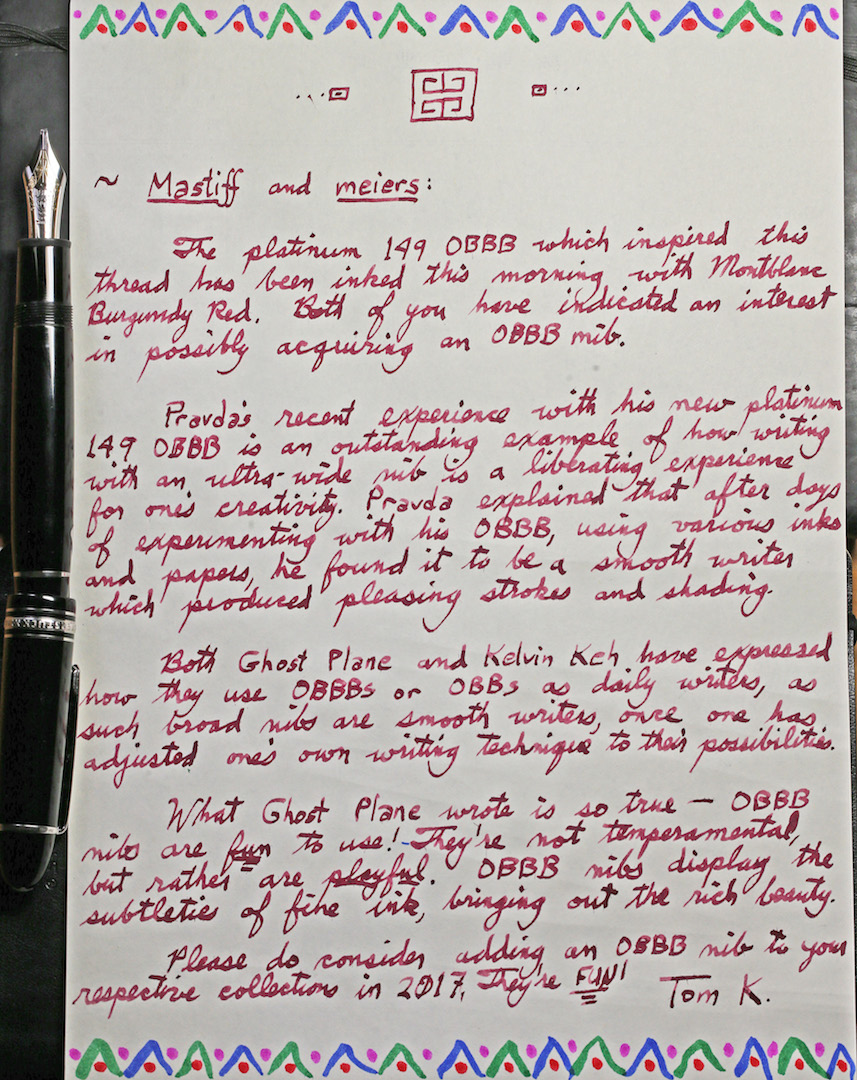 ~ Mastiff and meiers:
The platinum 149 OBBB which inspired this
thread has been inked this morning with Montblanc
Burgundy Red. Both of you have indicated an interest
in possibly acquiring an OBBB nib.
Pravda's recent experience with his new platinum
149 OBBB is an outstanding example of how writing
with an ultra-wide nib is a liberating experience
for one's creativity. Pravda explained that after days
of experimenting with his OBBB, using various inks
and papers, he found it to be a smooth writer
which produced pleasing strokes and shading.
Both Ghost Plane and Kelvin Keh have expressed
how they use OBBBs or OBBs as daily writers, as
such broad nibs are smooth writers, once one has
adjusted one's own writing technique to their possibilities.
What Ghost Plane wrote is so true — OBBB
nibs are fun to use! They're not temperamental,
but rather are playful. OBBB nibs display the
subtleties of fine ink, bringing out the rich beauty.
Please do consider adding an OBBB nib to your
respective collections in 2017. They're FUN! Tom K.